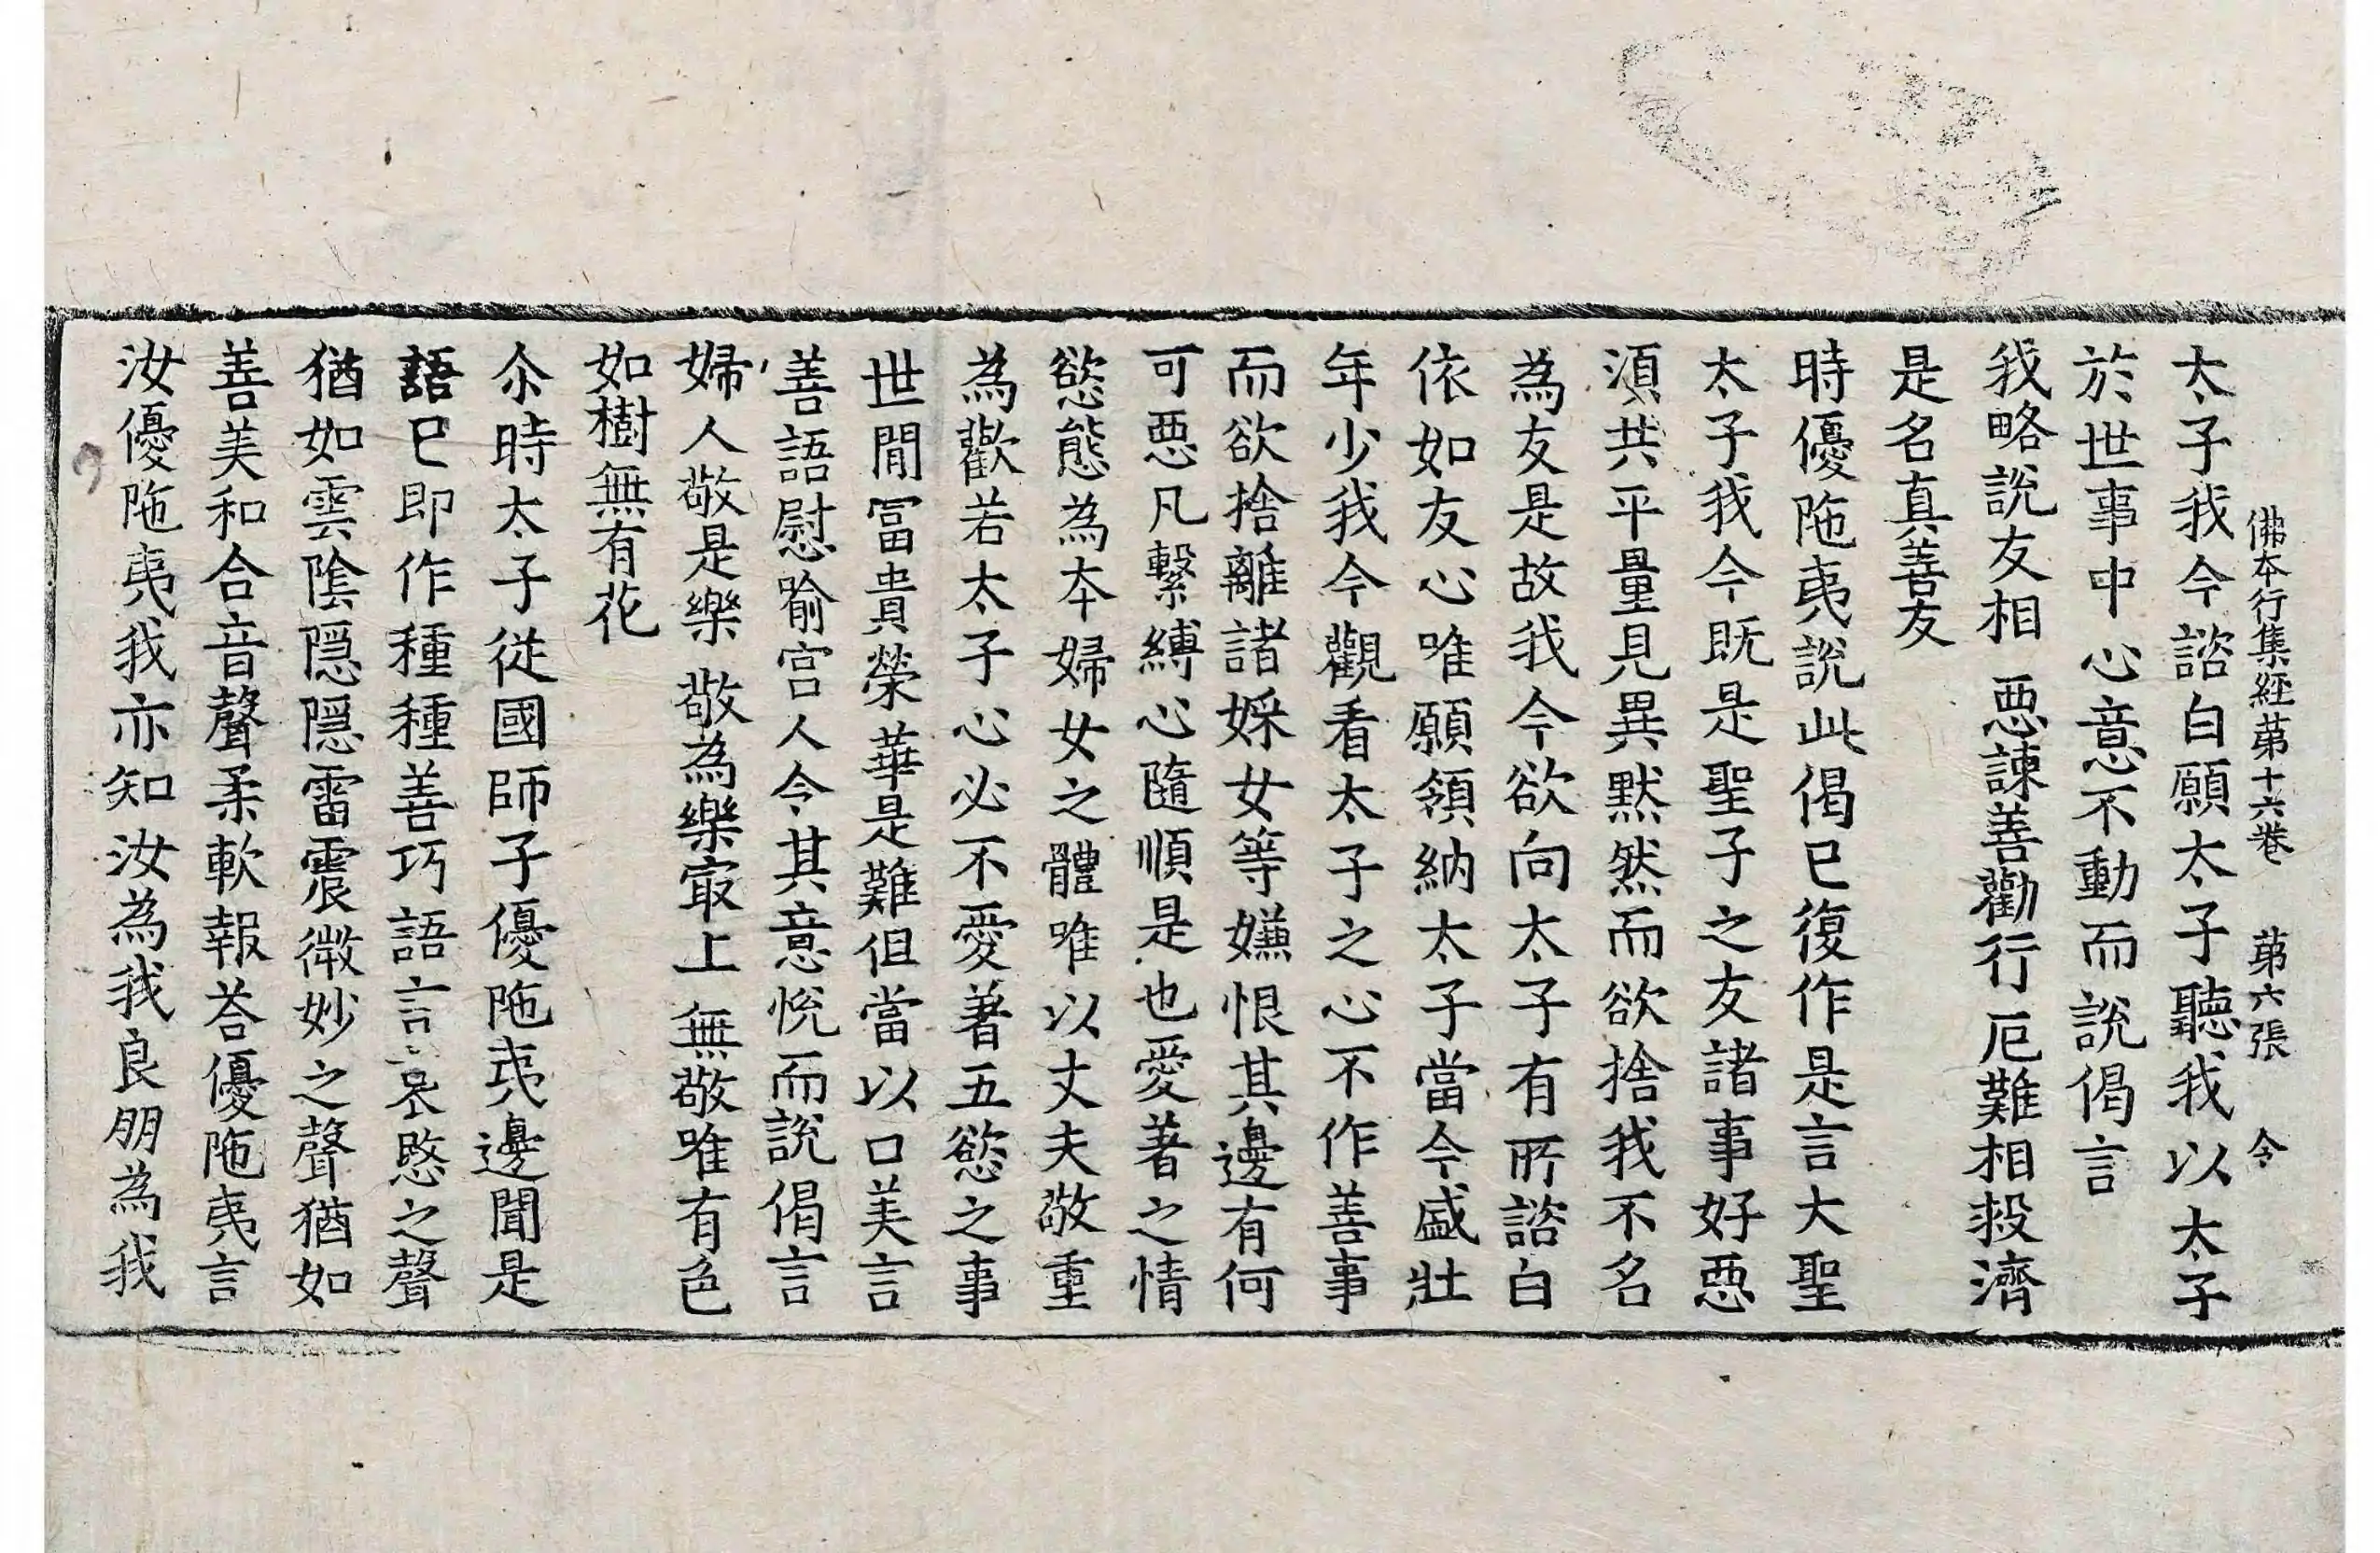 佛本行集經苐十六卷 苐六張 令
太子我今諮白願太子聽我以太子
於世事中心意不動而說偈言
我略說友相 惡諫善勸行 厄難相㨛濟
是名真善友
時優陁夷說此偈已復作是言大聖
太子我今既是聖子之友諸事好惡
湏共平量見異默然而欲捨我不名
為友是故我今欲向太子有所諮白
依如友心唯願領納太子當今盛壯
年少我今觀看太子之心不作善事
而欲捨離諸婇女等嫌恨其邊有何
可惡凡繫縛心隨順是也愛著之情
慾態為本婦女之體唯以丈夫敬重
為歡若太子心必不愛著五慾之事
世間冨貴榮華是難但當以口美言
善語慰喻宮人令其意悅而說偈言
婦人敬是樂 敬為樂冣上 無敬唯有色
如樹無有花
尒時太子從國師子優陁夷邊聞是
語已即作種種善巧語言哀愍之聲
猶如雲陰隱隱雷震微妙之聲猶如
善美和合音聲柔軟報荅優陁夷言
汝優陁夷我亦知汝為我良朋為我